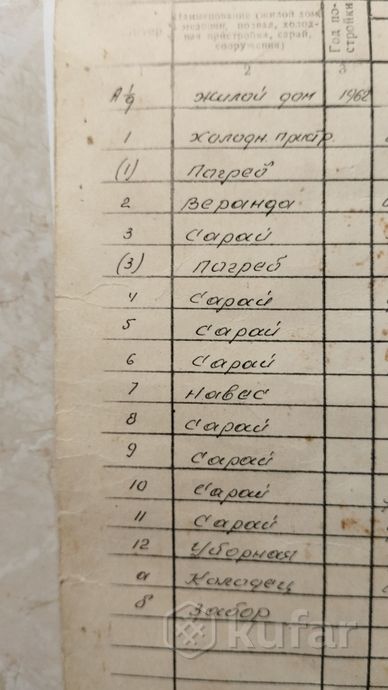 Наименование (жилой дом,
мезонин, подвал, холод-
ная пристройка, сарай,
сооружения)
Год по-
стройки
2 3
жилой дом 1962
1 холодн. пристр.
(1) Погреб
2 Веранда
3 Сарай
(3) Погреб
4 Сарай
5 Сарай
6 Сарай
7 Навес
8 Сарай
9 Сарай
10 Сарай
11 Сарай
12 Уборная
а Колодец
б Забор
kufar